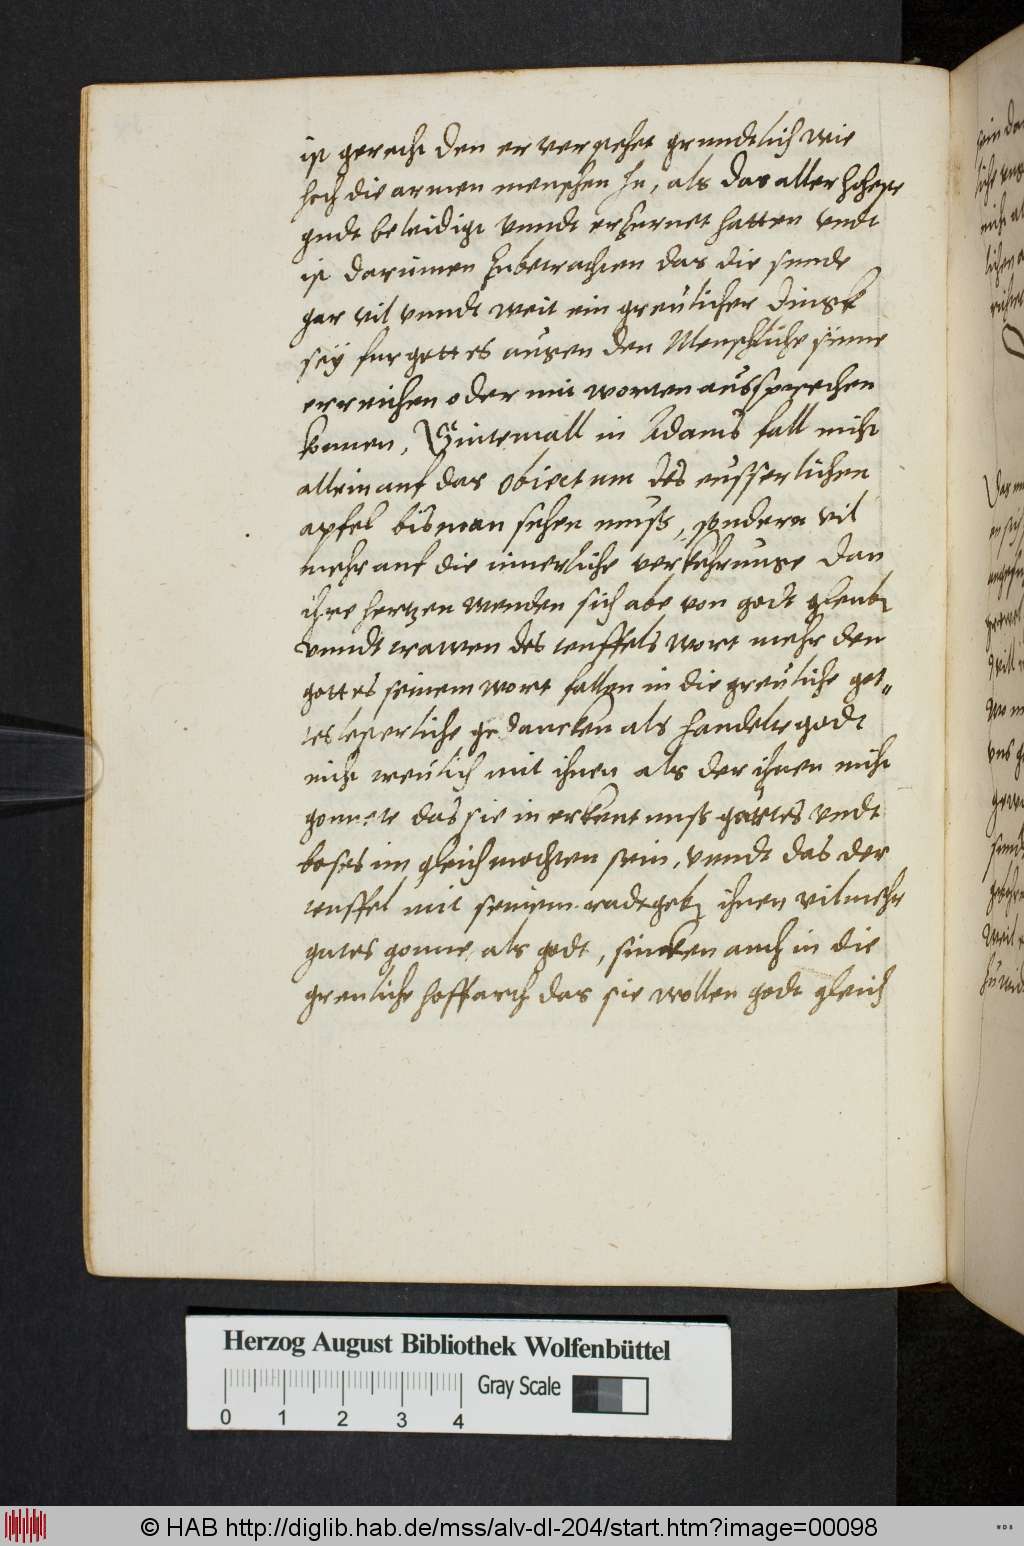 ist gerecht den er verstehet grundtlich wie
hoch die armen menschen In, als das aller hoheste
gudt beleidigt vnndt erzurnet hatten vndt
ist darumen zubetrachten das die sunde
gar vil vnndt weit ein greulicher dingk
seÿ fur gottes augen den Menschliche sinne
erreichen oder mit worten aussprechen
konnen, Sintemall in Adams fall nicht
allein auf das obiectum des eusserlichen
apfel bis man sehen muß, sondern vil
mehr auf die innerliche verkehrunge dan
ihre hertzen wenden sich abe von godt gleubn
vnndt trawen des teuffels wort mehr den
gottes seinem wort fallen in die greuliche got„
teslesterliche gedancken als handelte godt
nicht treulich mit ihnen als der ihnen nicht
gonnete das sie in erkentnuß guttes vndt
boses im gleich mochten sein, vnndt das der
teuffel mit seinem radtgebn ihnen vilmehr
gutes gonne, als godt, sincken auch in die
greuliche hoffarth das sie wollen godt gleich
Herzog August Bibliothek Wolfenbüttel
Gray Scale
0 1 2 3 4
© HAB http://diglib.hab.de/mss/alv-dl-204/start.htm?image=00098